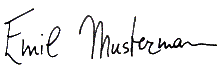 Emil Mustermann